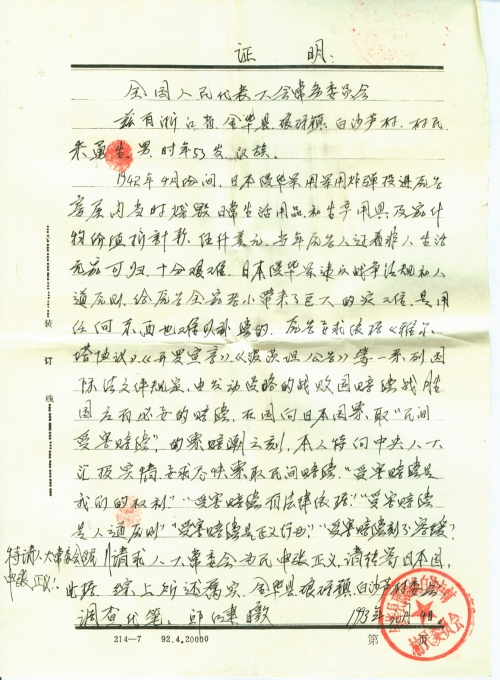 证 明：
全国人民代表大会常务委员会
兹有浙江省金华县琅琊镇白沙芦村，村民
朱 男，时年53岁，汉族。
1942年4月份间，日本侵华军用军用炸弹投进原告
房屋内当时烧毁日常生活用品和生产用具及家什
物价值折新款 任仟美元，当年原告人过着非人生活
无家可归，十分艰难，日本侵华军违反战争法规和人
道原则，给原告全家老小带来了巨大的灾难，是用
任何东西也难以补偿的，原告要求依据《雅尔
塔协议》、《开罗宣言》、《波茨坦公告》等一系列国
际法文件规定，由发动侵略的战败国赔偿战胜
国应有必要的赔偿，在国向日本国索取“民间
受害赔偿”的索赔潮之刻，本人特向中央人大
汇报实情，要求尽快索取民间赔偿，“受害赔偿是
我们的权利”“受害赔偿有法律依据”“受害赔偿
是人道原则”“受害赔偿是正义行为”“受害赔偿刻不容缓”
特请人大常委会为民
申张正义，
请求人大常委会为民申张正义，请转寄日本国，
此致 综上所述属实，金华县琅琊镇白沙芦村
调查代笔
1993年 月 日
装
订
线
214—7 92.4.20000
第 页
村民委员会